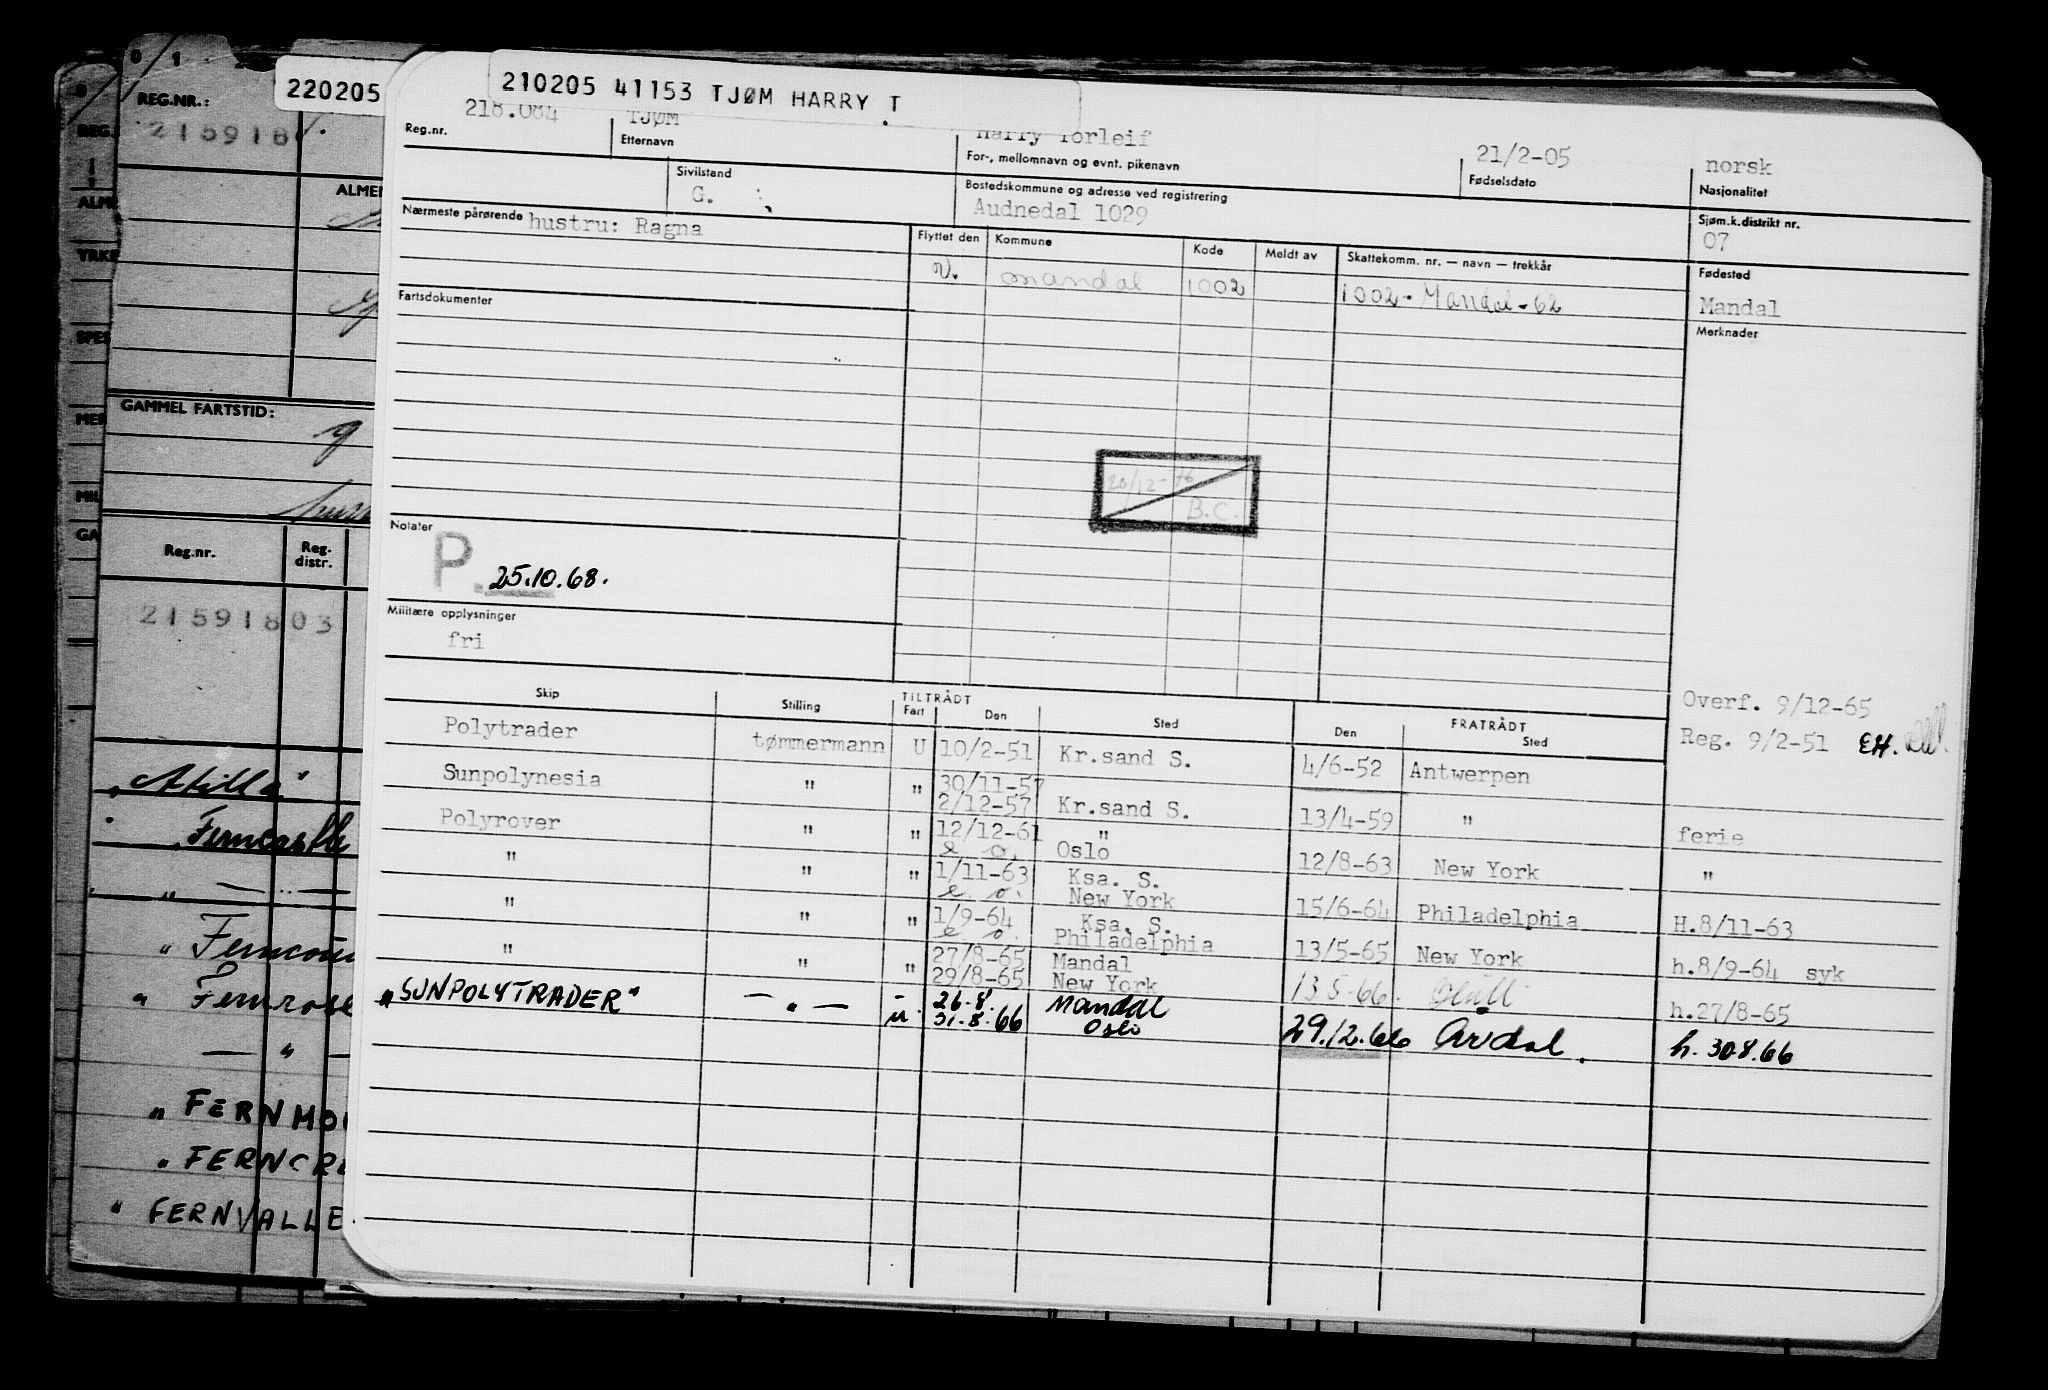 0 1
REG.NR.:
2159180
ALMEN
GAMMEL FARTSTID:
Reg.nr.
Reg. distr.
21591803
"Atilla"
Ferncastle
"
"
"
" FERNMO
" FERNCRE
" FERNVALLE
REG.
ALME
YRKE
SPES
MER
MIL
GA
220205
210205 41153 TJØM HARRY T
218.084 TJØM Harry Torleif 21/2-05 norsk
Reg.nr. Etternavn For-, mellomnavn og evnt. pikenavn Fødselsdato Nasjonalitet
Sivilstand Bostedskommune og adresse ved registrering Sjøm.k.distrikt nr.
G. Audnedal 1029 07
Nærmeste pårørende hustru: Ragna Flyttet den Kommune Kode Meldt av Skattekomm. nr. — navn — trekkår Fødested
v. Mandal 1002 1002 - Mandal - 62 Mandal
Fartsdokumenter Merknader
20/12-76
B.C.
Notater
P. 25.10.68.
Militære opplysninger
fri
Overf. 9/12-65
Reg. 9/2-51 EH.
Skip Stilling TILTRÅDT FRATRÅDT
Fart Den Sted Den Sted
Polytrader tømmermann U 10/2-51 Kr.sand S. 4/6-52 Antwerpen
Sunpolynesia " " 30/11-57
2/12-57 Kr.sand S. 13/4-59 " ferie
Polyrover " " 12/12-61 "
Oslo 12/8-63 New York "
" " " 1/11-63 Ksa. S.
New York 15/6-64 Philadelphia H.8/11-63
" " " 1/9-64 Ksa. S.
Philadelphia 13/5-65 New York h.8/9-64 syk
" " " 27/8-65 Mandal
29/8-65 New York 13.5.66. h.27/8-65
"SUNPOLYTRADER" — " — u 26.8. Mandal
31.8.66 Oslo 29.12.66 Årdal. h. 30.8.66